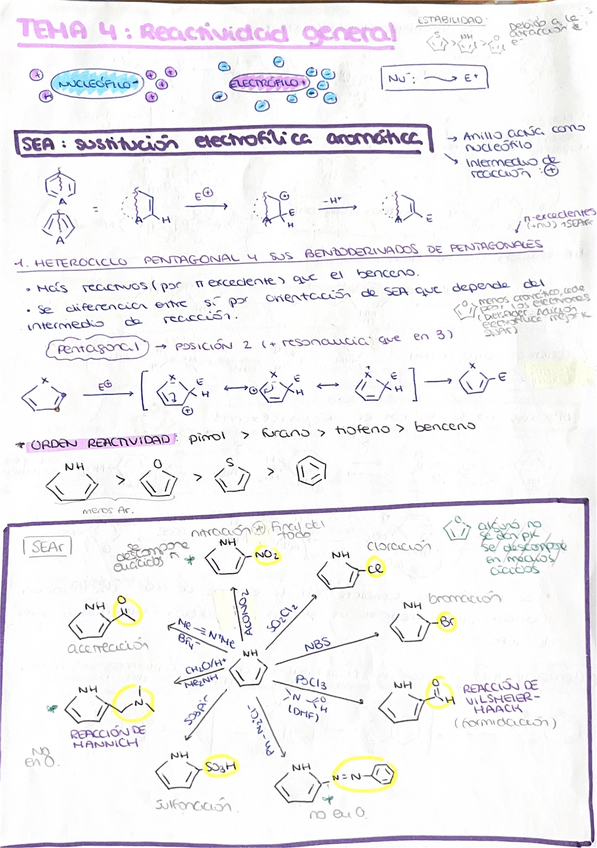 TEMA 4: Reactividad general
ESTABILIDAD:
Debido a la
atracción de
e⁻
S > NH > O
NUCLEÓFILO -
ELECTRÓFILO +
Nu⁻: → E⁺
SEA: sustitución electrofílica aromática
→ Anillo actúa como
nucleófilo
↘ Intermedio de
reacción: ⊕
A
A
=
A
H
E⊕
A
E
H
-H⁺
A
E
π-excedentes
1. HETEROCICLO PENTAGONAL Y SUS BENZODERIVADOS DE PENTAGONALES
• Más reactivos (por π excedente) que el benceno.
• Se diferencian entre sí por orientación de SEA que depende del
intermedio de reacción.
menos aromático, cede
Pentagonal → POSICIÓN 2 (+ resonancia que en 3)
X
E⊕
X
E
H
X
E
H
X
E
H
X
E
* ORDEN REACTIVIDAD: pirrol > furano > tiofeno > benceno
NH > O > S >
menos Ar.
SEAr
se
descompone
nitración ⊕ Final del
todo
NH
NO₂
cloración
NH
Cl
O
alguno no
se dan pk
se descompone
en medios
ácidos
NH
O
acetilación
Me ≡ N⁺Me
BF₄⁻
AcONO₂
SO₂Cl₂
NBS
bromación
NH
Br
CH₂O/H⁺
Me₂NH
NH
POCl₃
N
O
H
(DMF)
NH
O
H
REACCIÓN DE
VILSMEIER-
HAACK
(formilación)
NH
N
REACCIÓN DE
MANNICH
NO
en O.
Ph-N₂Cl⁻
NH
SO₃H
sulfonación.
NH
N=N
no en O.